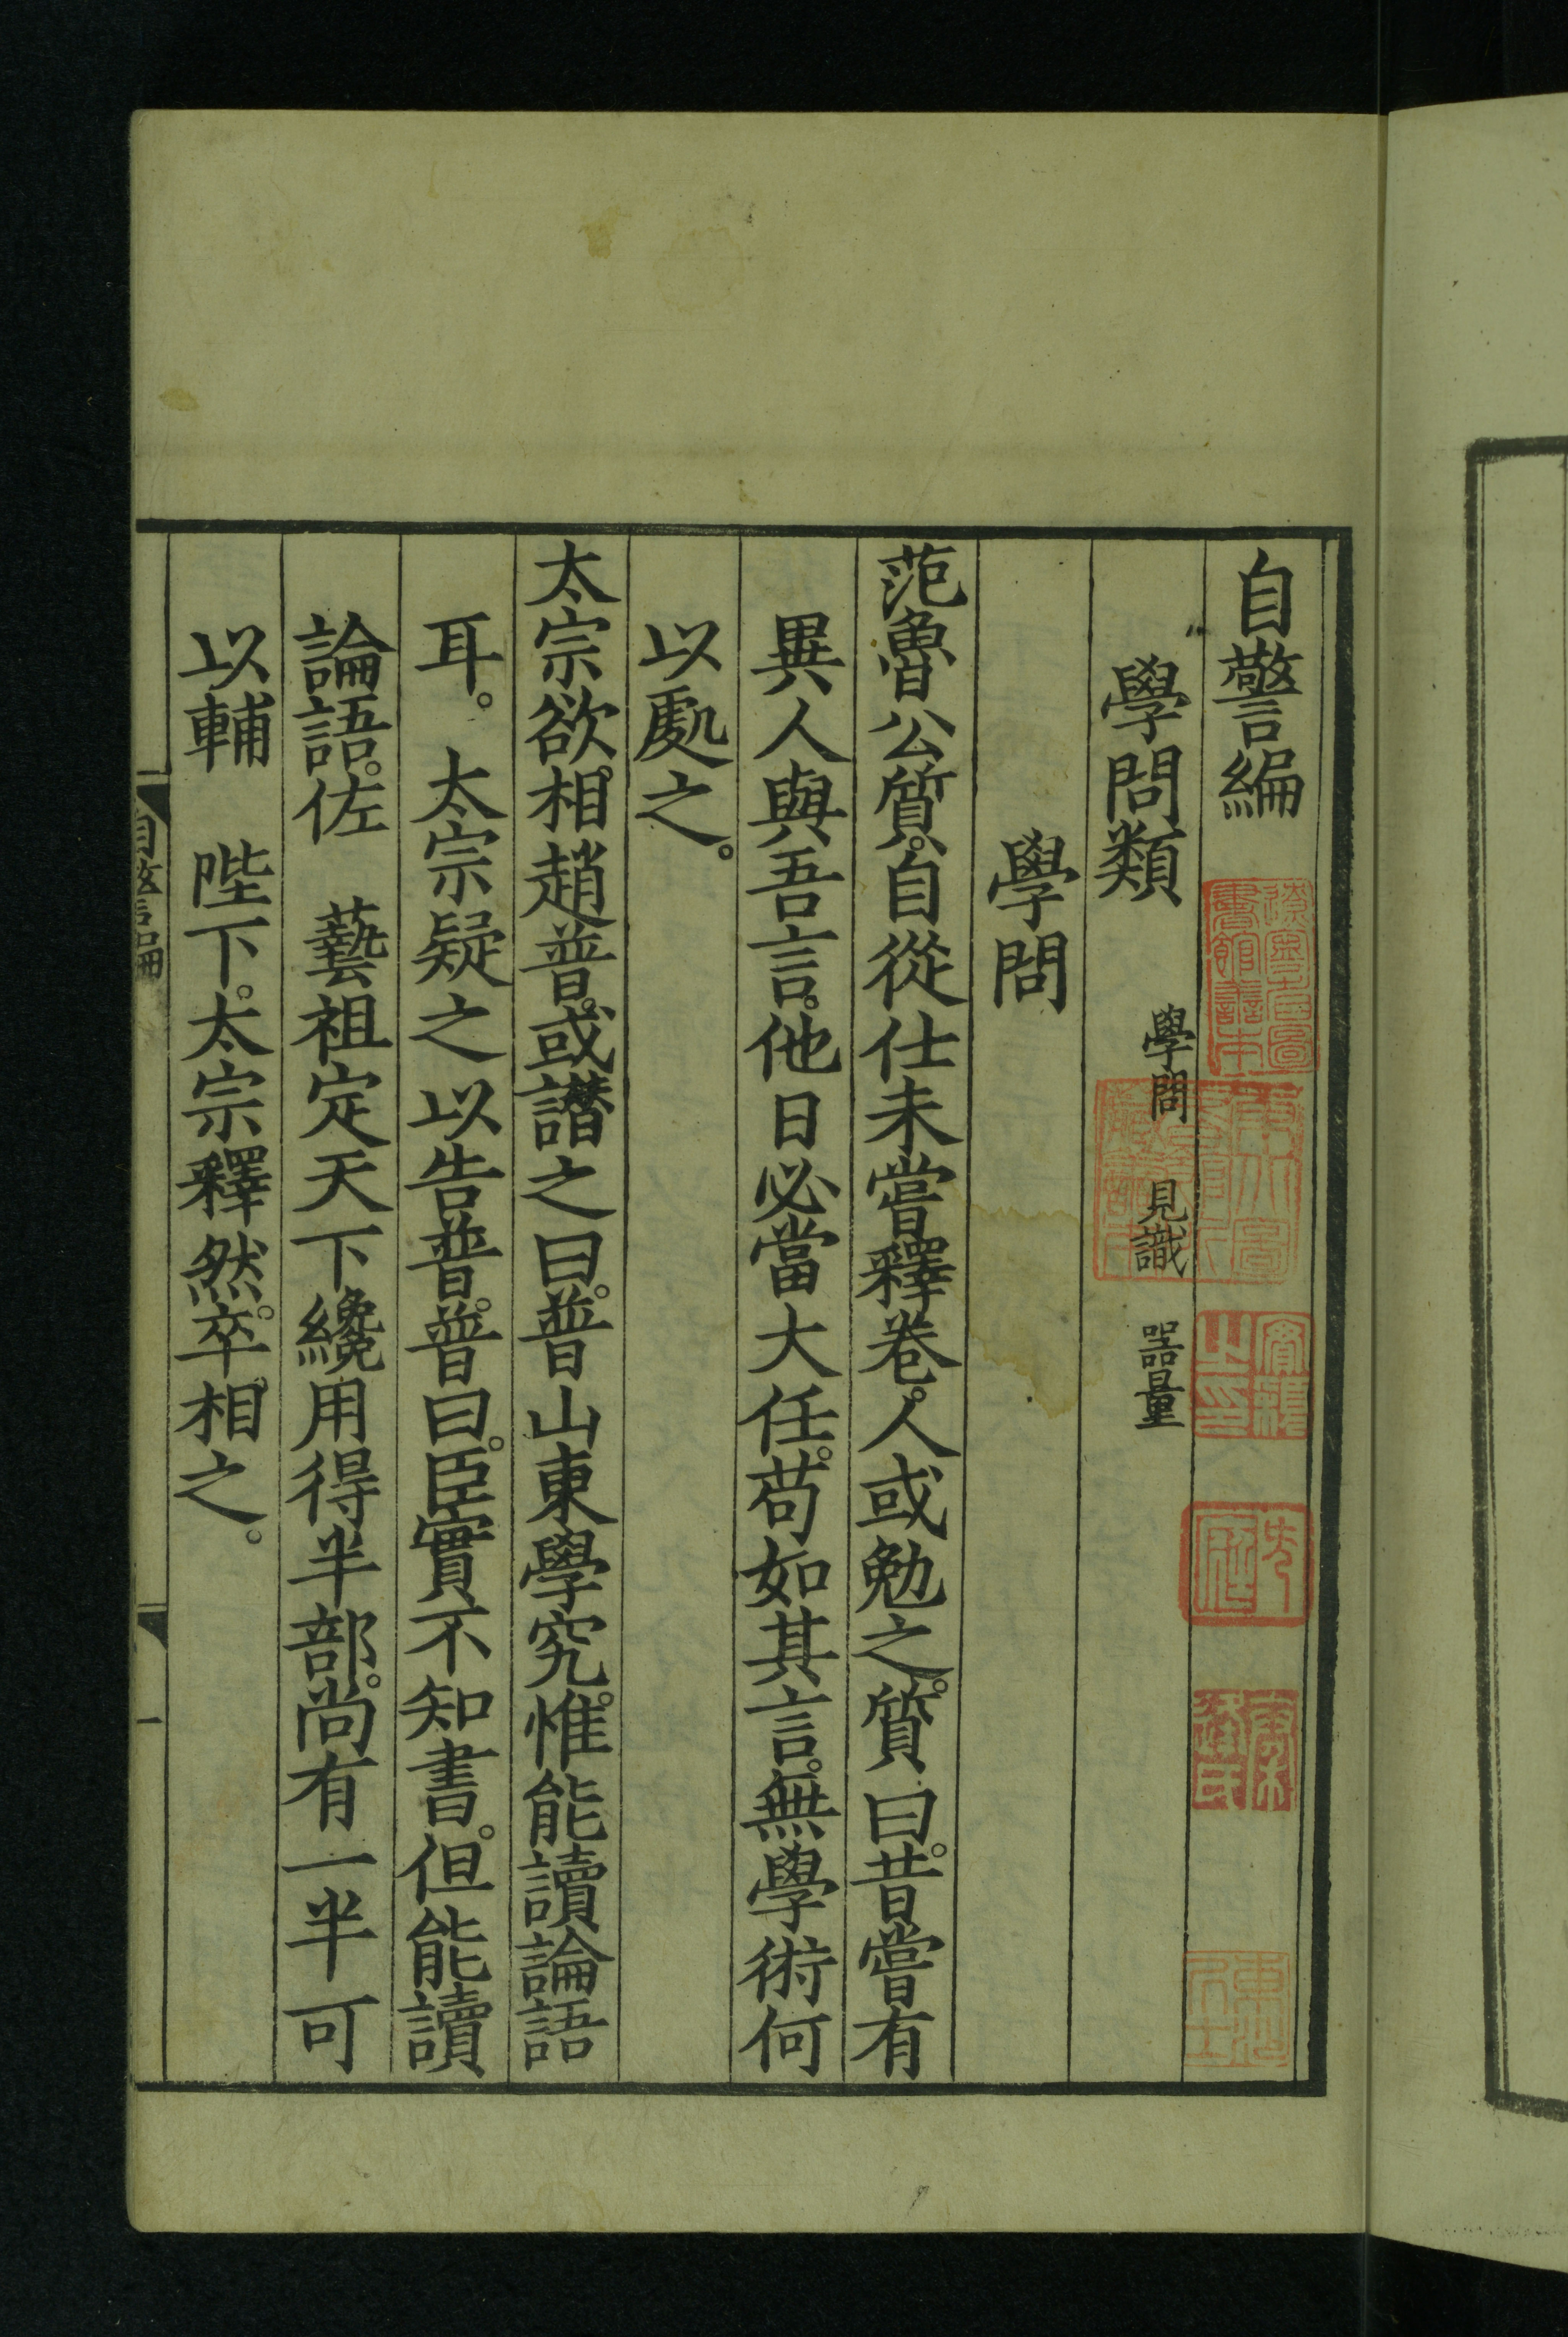 自警編
學問類 學問 見識 噐量
學問
范魯公質。自從仕未嘗釋卷。人或勉之。質曰。昔嘗有
異人與吾言。他日必當大任。苟如其言。無學術何
以處之。
太宗欲相趙普。或譖之曰。普山東學究。惟能讀論語
耳。 太宗疑之以告普。普曰。臣實不知書。但能讀
論語。佐 藝祖定天下纔用得半部。尚有一半可
以輔 陛下。太宗釋然。卒相之。
自警編
一